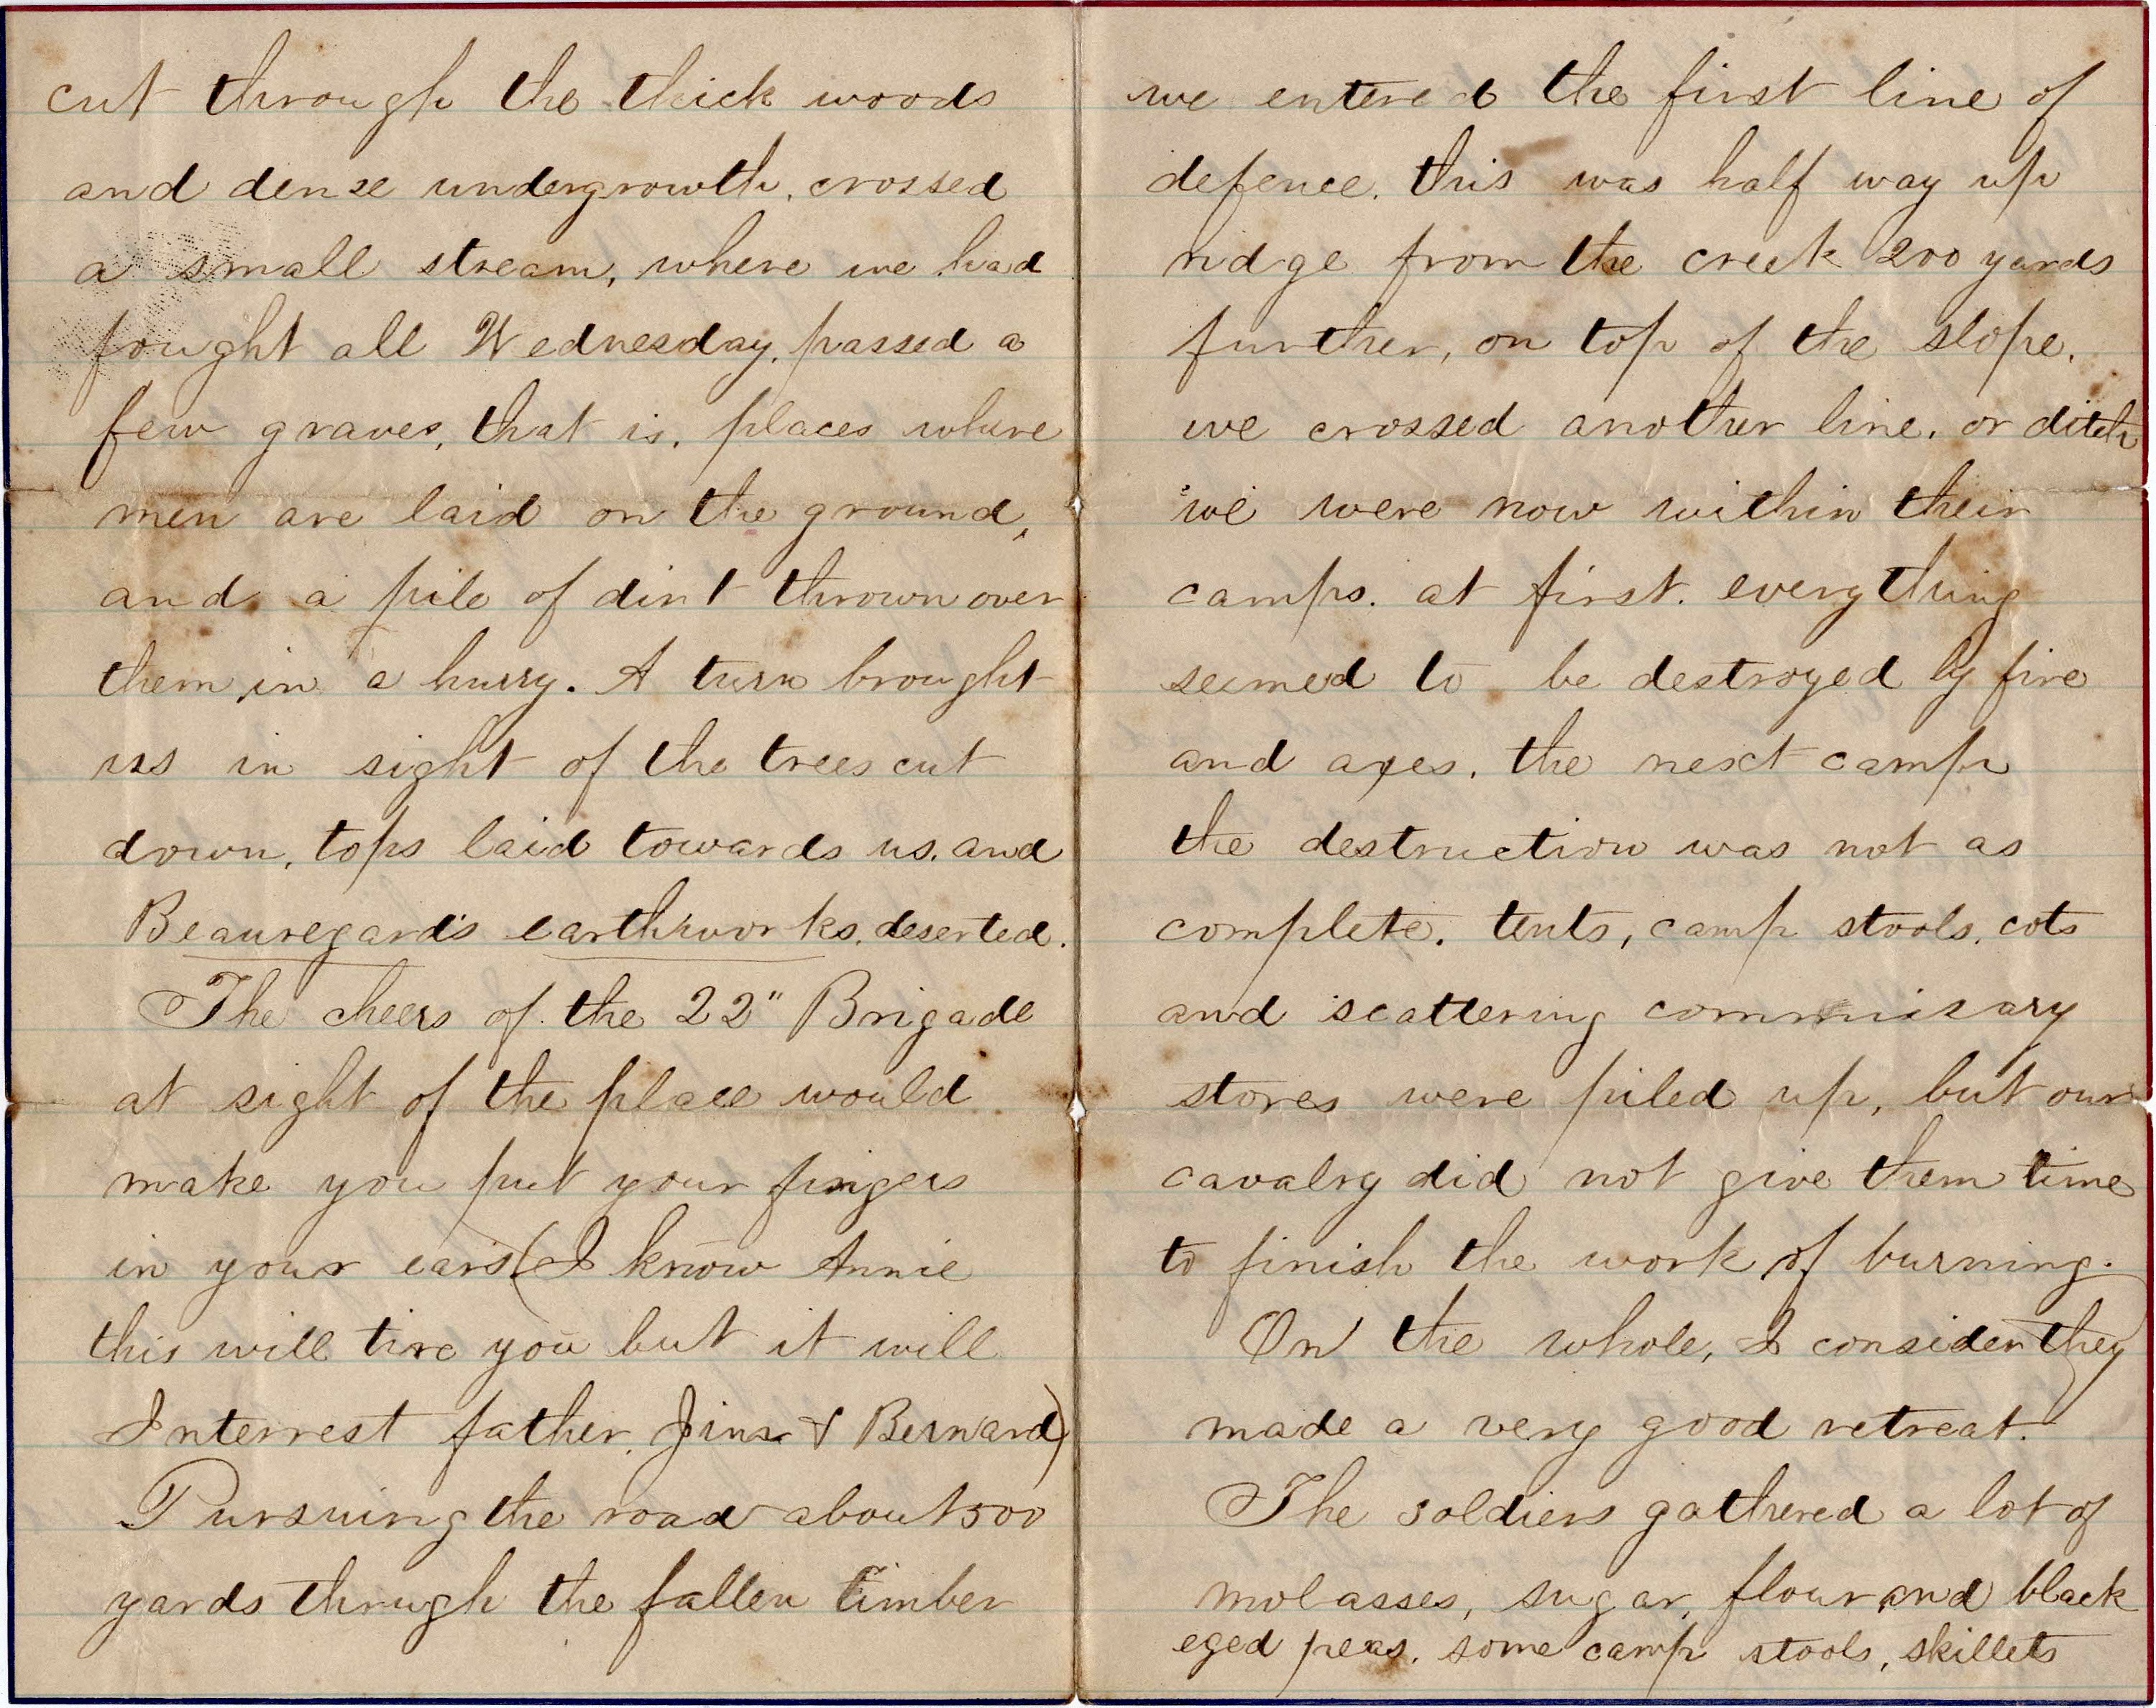 cut through the thick woods
and dense undergrowth, crossed
a small stream, where we had
fought all Wednesday, passed a
few graves, that is, places where
men are laid on the ground,
and a pile of dirt thrown over
them in a hurry. A turn brought
us in sight of the trees cut
down, tops laid towards us, and
Beauregards earthworks, deserted.
The cheers of the 22" Brigade
at sight of the place would
make you put your fingers
in your ears (I know Annie
this will tire you but it will
Interrest father, Jim & Bernard)
Pursuing the road about 500
yards through the fallen timber
we entered the first line of
defence. this was half way up
ridge from the creek 200 yards
further, on top of the slope.
we crossed another line, or ditch
we were now within their
camps. at first. everything
seemed to be destroyed by fire
and axes. the next camp
the destruction was not as
complete. tents, camp stools, cots
and scattering commissary
stores were piled up, but our
cavalry did not give them time
to finish the work of burning.
On the whole, I consider they
made a very good retreat.
The soldiers gathered a lot of
molasses, sugar, flour and black
eyed peas. some camp stools, skillets